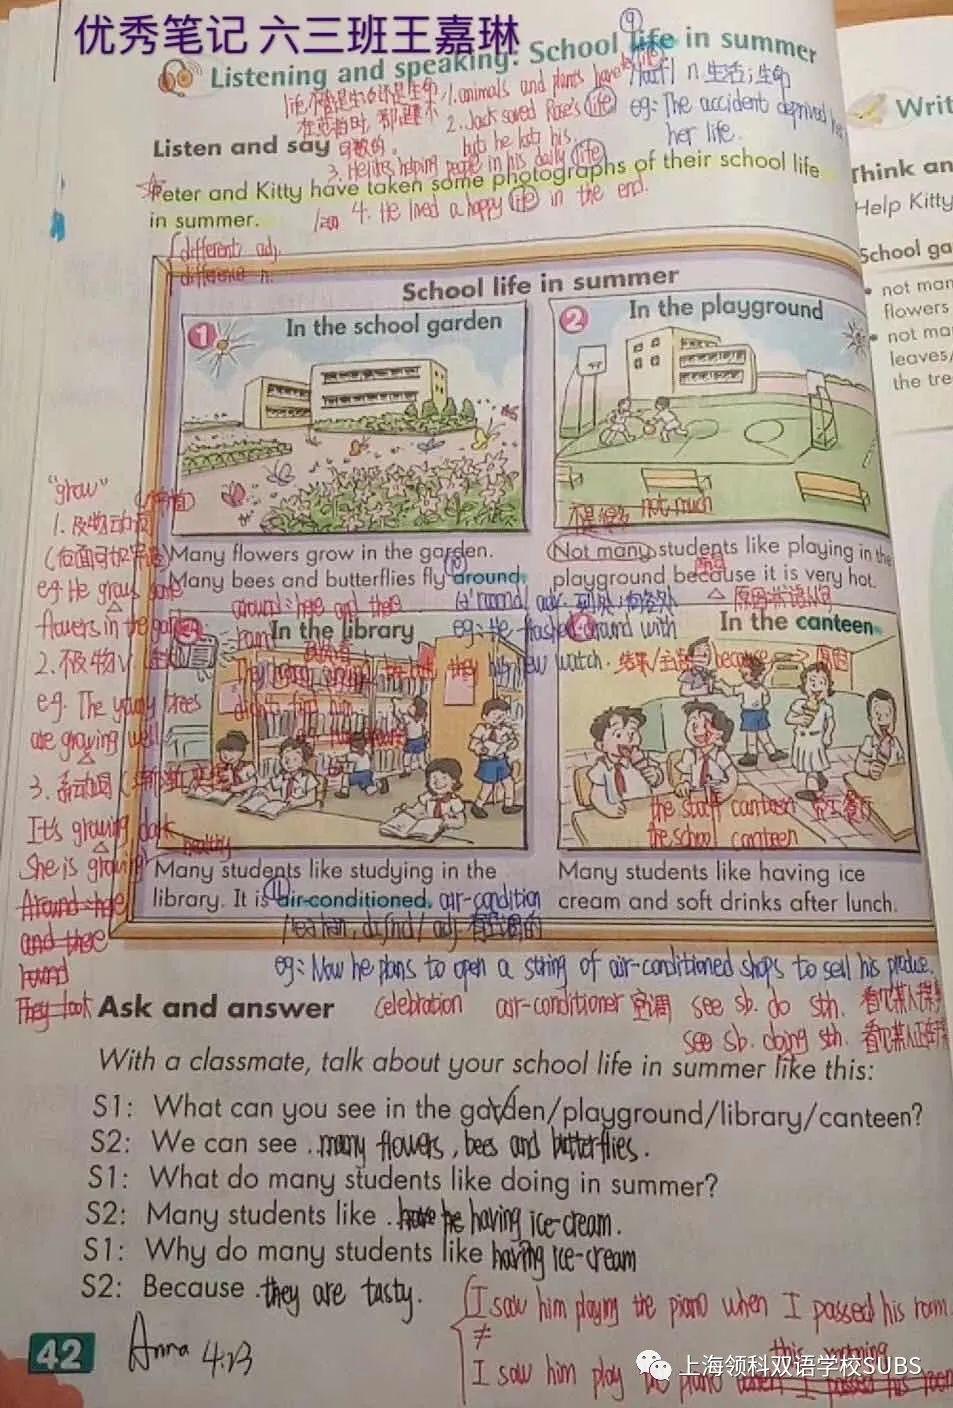 优秀笔记 六三班王嘉琳
Listening and speaking: School life in summer
⑨
n. 生活；生命
1. animals and plants have
在 时, 都是
2. Jack saved Rose's life
eg: The accident deprived her
but he lost his.
her life.
Listen and say
可数的.
3. He likes helping people in his daily life
Peter and Kitty have taken some photographs of their school life
in summer.
4. He lived a happy life in the end.
different adj.
difference n.
School life in summer
1
In the school garden
2
In the playground
not much
Many flowers grow in the garden.
Many bees and butterflies fly around.
Not many students like playing in the
playground because it is very hot.
around = here and there
adv. 到处；向各处
eg: He flashed around with
his new watch.
结果/主句 because → 原因
"grow"
1. 及物动词
eg. He grows some
flowers in the garden
2. 不及物v.
eg. The young trees
are growing well
3. 系动词
It's growing dark
She is growing
Around = here
and there
round
They look
In the library
In the canteen
the staff canteen 员工餐厅
the school canteen
healthy
Many students like studying in the
library. It is air-conditioned. air-condition
Many students like having ice
cream and soft drinks after lunch.
adj. 有空调的
eg: Now he plans to open a string of air-conditioned shops to sell his produce.
Ask and answer
celebration air-conditioner 空调 see sb. do sth.
see sb. doing sth.
With a classmate, talk about your school life in summer like this:
S1: What can you see in the garden/playground/library/canteen?
S2: We can see many flowers, bees and butterflies.
S1: What do many students like doing in summer?
S2: Many students like having ice-cream.
S1: Why do many students like having ice-cream
S2: Because they are tasty.
I saw him playing the piano when I passed his room.
≠
this morning
I saw him play the piano when I passed his room
42
Anna 4.13
上海领科双语学校SUBS
Writ
Think an
Help Kitty
School ga
• not man
flowers
• not ma
leaves/
the tre